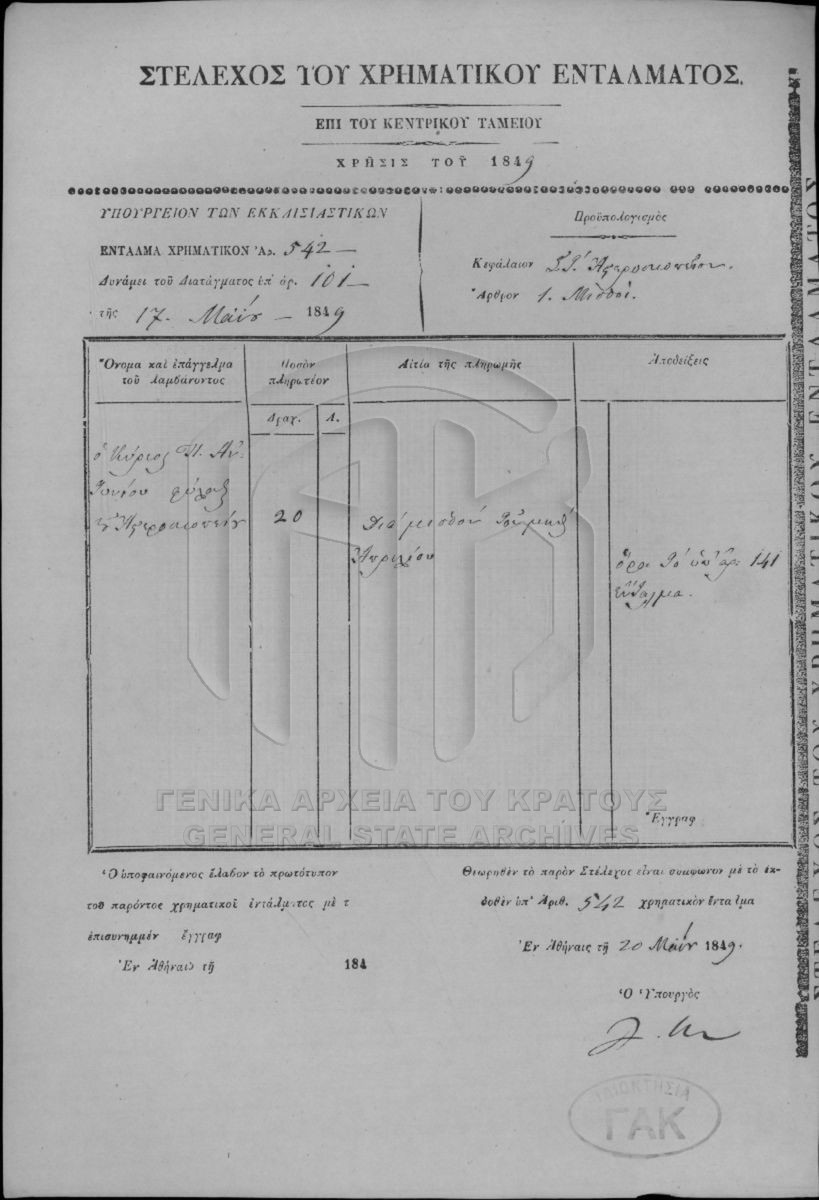 ΣΤΕΛΕΧΟΣ ΤΟΥ ΧΡΗΜΑΤΙΚΟΥ ΕΝΤΑΛΜΑΤΟΣ.
ΕΠΙ ΤΟΥ ΚΕΝΤΡΙΚΟΥ ΤΑΜΕΙΟΥ
ΧΡΗΣΙΣ ΤΟΥ 1849
ΥΠΟΥΡΓΕΙΟΝ ΤΩΝ ΕΚΚΛΙΣΙΑΣΤΙΚΩΝ
ΕΝΤΑΛΜΑ ΧΡΗΜΑΤΙΚΟΝ Ἀρ. 542
Δυνάμει τοῦ Διατάγματος ὑπ' ἀρ. 101
τῆς 17 Μαΐου 1849
Προϋπολογισμὸς
Κεφάλαιον ΣΤ' Ἀστεροσκοπείου.
Ἄρθρον 1. Μισθοί.
Ὄνομα καὶ ἐπάγγελμα
τοῦ λαμβάνοντος
Ποσὸν
πληρωτέον
Αἰτία τῆς πληρωμῆς
Ἀποδείξεις
Δραχ. Λ.
ὁ Κύριος Π. Ἀν-
τωνίου φύλαξ
Ἀστεροσκοπείου
20
Διὰ μισθόν του μηνὸς
Ἀπριλίου
ὅρα τό ὑπ' ἀρ. 141
ἔνταλμα.
Ἔγγραφ
ΓΕΝΙΚΑ ΑΡΧΕΙΑ ΤΟΥ ΚΡΑΤΟΥΣ
GENERAL STATE ARCHIVES
Ὁ ὑποφαινόμενος ἔλαβον τὸ πρωτότυπον
τοῦ παρόντος χρηματικοῦ ἐντάλματος μὲ τ
ἐπισυνημμέν ἔγγραφ
Ἐν Ἀθήναις τῇ 184
Θεωρηθὲν τὸ παρὸν Στέλεχος εἶναι σύμφωνον μὲ τὸ ἐκ-
δοθὲν ὑπ' Ἀριθ. 542 χρηματικὸν ἔνταλμα
Ἐν Ἀθήναις τῇ 20 Μαΐου 1849.
Ὁ Ὑπουργὸς
ΙΔΙΟΚΤΗΣΙΑ
ΓΑΚ
ΣΤΕΛΕΧΟΣ ΤΟΥ ΧΡΗΜΑΤΙΚΟΥ ΕΝΤΑΛΜΑΤΟΣ